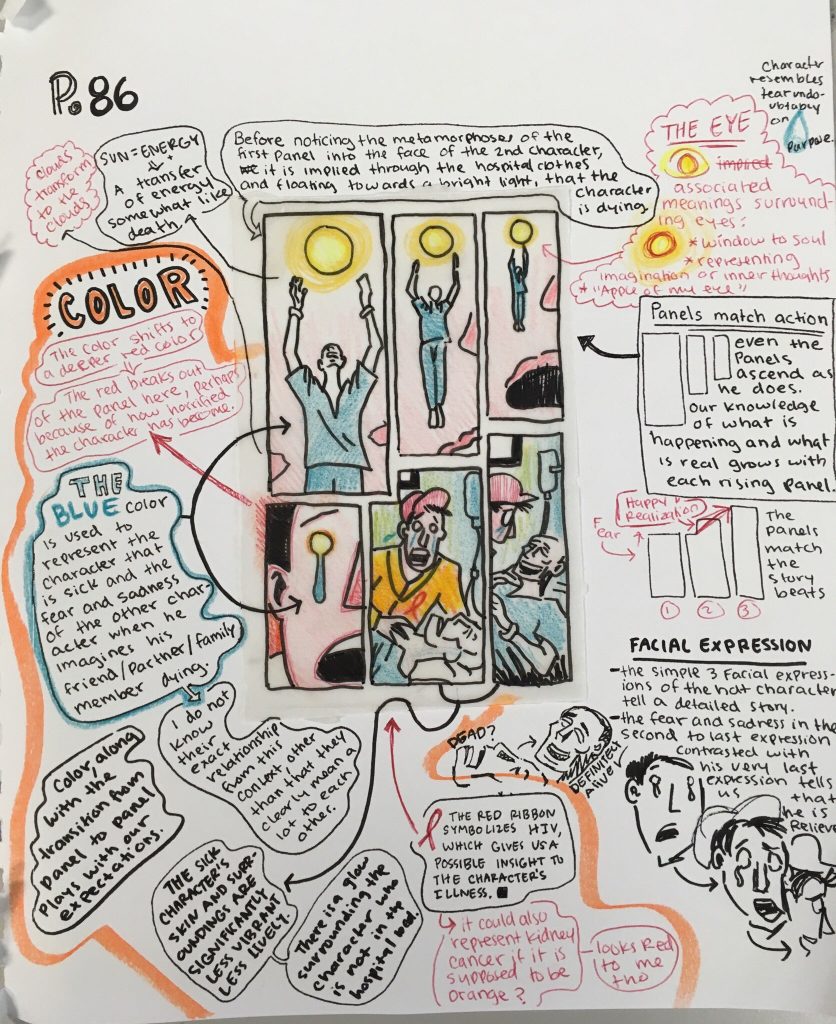 P. 86
clouds
transform
to the
clouds
SUN = ENERGY
A transfer
of energy
somewhat like
death
Before noticing the metamorphoses of the
first panel into the face of the 2nd character,
it is implied through the hospital clothes
and floating towards a bright light, that the
character
is dying
Character
resembles
tear undo-
ubtably
on
Purpose.
THE EYE
implied
associated
meanings surround-
ing eyes:
* window to soul
* representing
imagination or inner thoughts
* "Apple of my eye"
COLOR
The color shifts to
a deeper red color
The red breaks out
of the panel here, perhaps
because of how horrified
the character has become.
Panels match action
even the
Panels
ascend as
he does.
Our knowledge
of what is
happening and what
is real grows with
each rising panel.
Happy
Realization
Fear
1
2
3
The
panels
match
the
story
beats
THE
BLUE color
is used to
represent the
character that
is sick and the
fear and sadness
of the other char-
acter when he
imagines his
friend/partner/family
member dying.
I do not
know
their
exact
relationship
from this
context, other
than that they
clearly mean a
lot to each
other.
Color, along
with the
transition from
panel to panel
plays with our
expectations.
THE SICK
CHARACTER'S
SKIN AND SURR-
OUNDINGS ARE
SIGNIFICANTLY
LESS VIBRANT
LESS LIVELY.
There is a glow
surrounding the
character who
is not in the
hospital bed.
DEAD?
DEFINITELY
ALIVE!
THE RED RIBBON
SYMBOLIZES HIV,
WHICH GIVES US A
POSSIBLE INSIGHT TO
THE CHARACTER'S
ILLNESS.
it could also
represent kidney
cancer if it is
supposed to be
orange?
looks Red
to me
tho
FACIAL EXPRESSION
- the simple 3 facial express-
ions of the hat character
tell a detailed story.
- the fear and sadness in the
second to last expression
contrasted with
his very last
expression tells
us
that
he is
Relieved